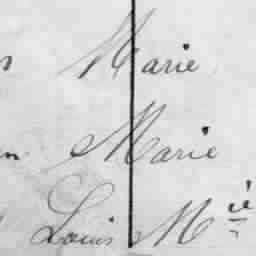 Marie
Marie
Louis Mie